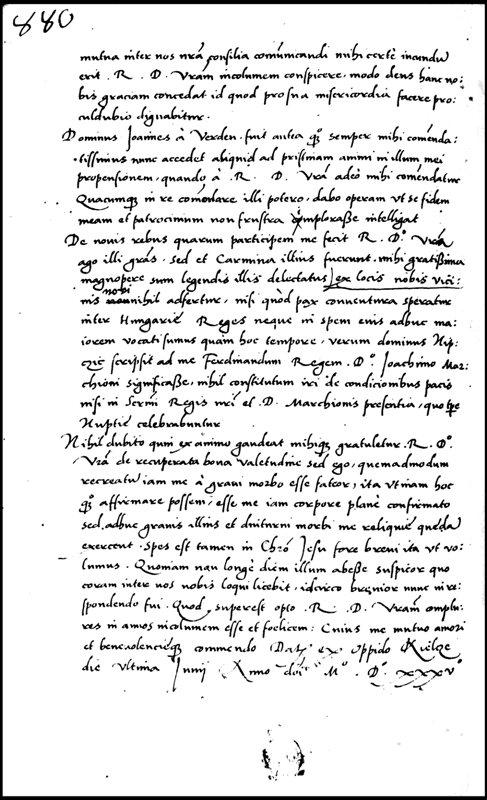 880
mutua inter nos nrã consilia comũnicandi mihi certè iucundũ
erit . R . D . Vram incolumem conspicere, modo deus hanc no:
bis graciam concedat id quod pro sua misericordia facere pro:
culdubio dignabitur.
Dominus Joannes à Verden . fuit antea qȝ semper mihi comẽda:
tissimus nunc accedet aliquid ad pristinam animi in illum mei
propensionem, quando à . R . D . Vrã adeò mihi comẽdatur
Quacumqȝ in re comodare illi potero, dabo operam vt se fidem
meam et patrocinium non frustra imploraße intelligat
De nouis rebus quarum participem me fecit R . D . Vrã
ago illi gras . sed et Carmina illius fuerunt mihi gratißima
magnopere sum legendis illis delectatus ex locis nobis vici:
nis nobi nihil adfertur, nisi quod pax conuentura speratur
inter Hungarię Reges neque in spem eius adhuc ma:
iorem vocati sumus quàm hoc tempore, verum dominus Nip:
czic scripsit ad me Ferdinandum Regem . D . Joachimo Mar:
chioni significaße, nihil constitutum iri de condicionibus pacis
nisi in Sermi Regis nri et D . Marchionis presentia, quo tpe
Nuptie celebrabuntur
Nihil dubito quin ex animo gaudeat mihiqȝ gratuletur . R . D .
Vrã de recuperata bona valetudine sed ego, quemadmodum
recreatũ iam me à graui morbo esse fateor, ita vtinam hoc
qȝ affirmare possem, esse me iam corpore planè confirmato
sed, adhuc grauis illius et diuturni morbi me reliquię quędã
exercent . Spes est tamen in Chrõ Jesu fore breui ita vt vo:
lumus . Quoniam nõ longè diem illum abeße suspicor quo
coram inter nos nobis loqui licebit, idcirco breuior nunc in re:
spondendo fui . Quod superest opto . R . D . Vram complu:
res in annos incolumem esse et foelicem : Cuius me mutuo amori
et beneuolencięqȝ commendo Dat ex oppido Kielze
die vltima Junij Anno dni M . D . xxxv